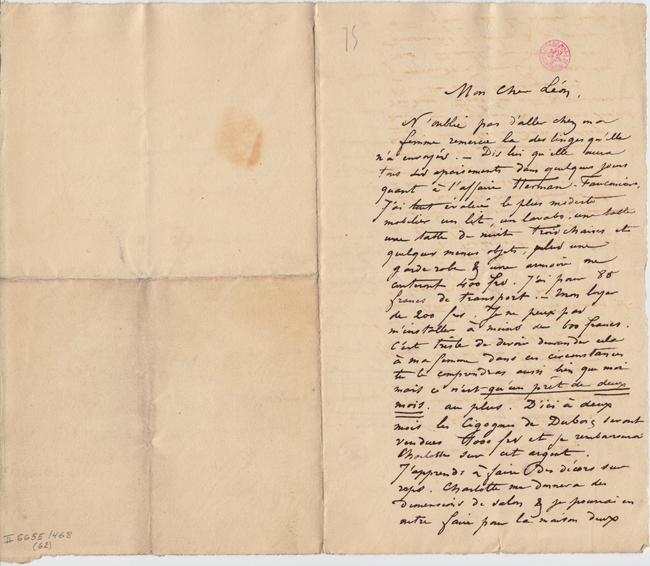 75
Mon Cher Léon,
N'oublie pas d'aller chez ma
femme remercie la des linges qu'elle
m'a envoyés. — Dis lui qu'elle aura
tous ses apaisements dans quelques jours
quant à l'affaire Herman-Fauconnier.
J'ai tout évalué le plus modeste
mobilier un lit, un lavabo, une table
une table de nuit trois chaises et
quelques menus objets, plus une
garde robe & une armoire me
couteront 400 frs. J'ai pour 85
francs de transport. — Mon loyer
de 200 frs. Je ne peux pas
m'installer à moins de 600 francs.
C'est triste de devoir demander cela
à ma femme dans ces circonstances
tu le comprendras aussi bien que moi
mais ce n'est qu'un prêt de deux
mois. au plus. D'ici à deux
mois les Cigognes de Dubois seront
vendues 1000 frs et je rembourserai
Charlotte sur cet argent.
J'apprends à faire des décors sur
reps. Charlotte me donnera des
dimensions de salon & je pourrai en
outre faire pour la maison deux
II 6655/468
(62)